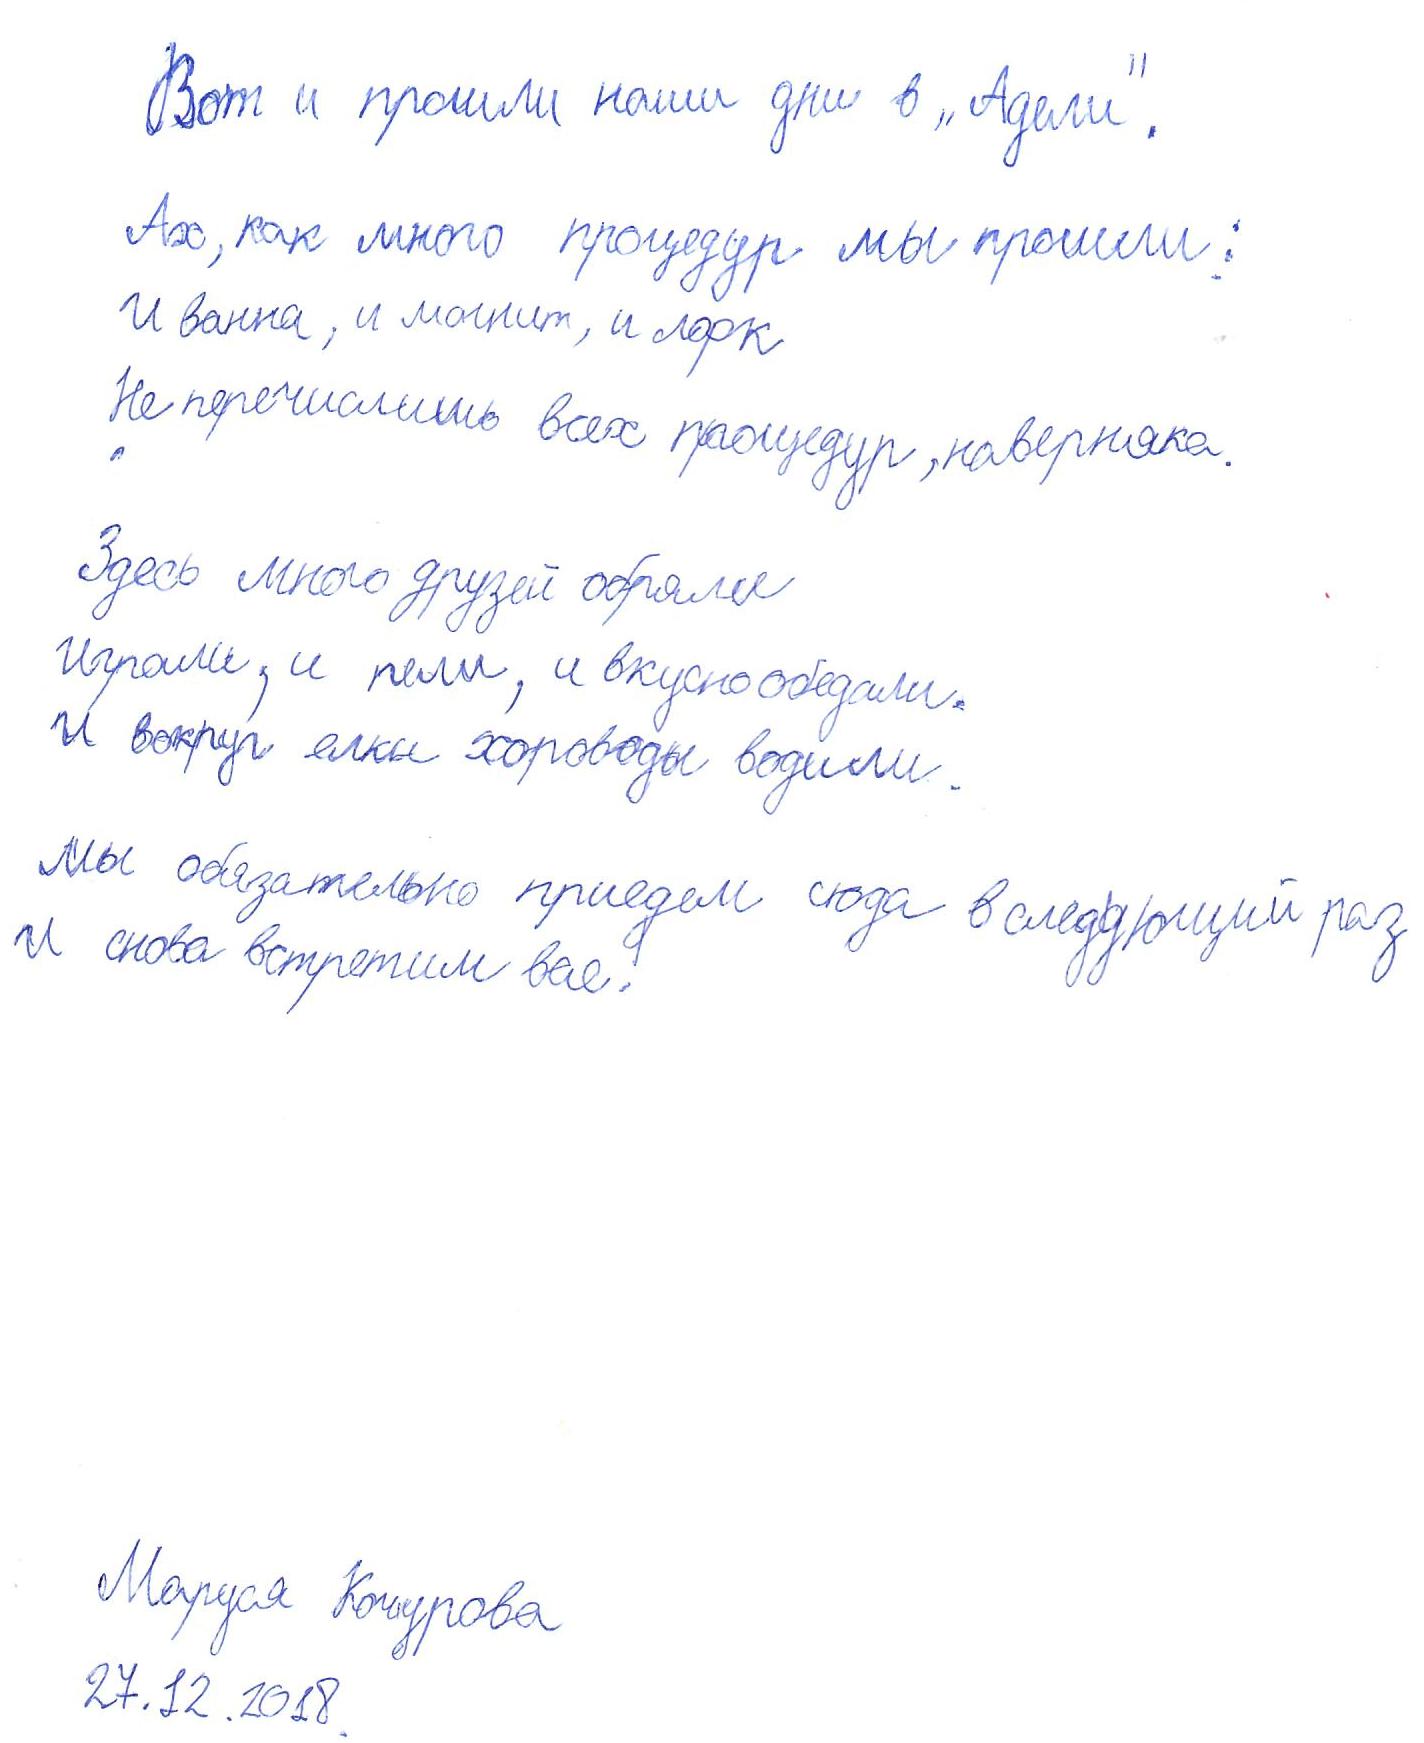 Вот и прошли наши дни в „Адели".
Ах, как много процедур мы прошли:
И ванна, и магнит, и лфк
Не перечислишь всех процедур, наверняка.
Здесь много друзей обряли
Играли, и пели, и вкусно обедали.
И вокруг елки хороводы водили.
Мы обязательно приедем сюда в следующий раз
И снова встретим вас!
Маруся Кочурова
27.12.2018.